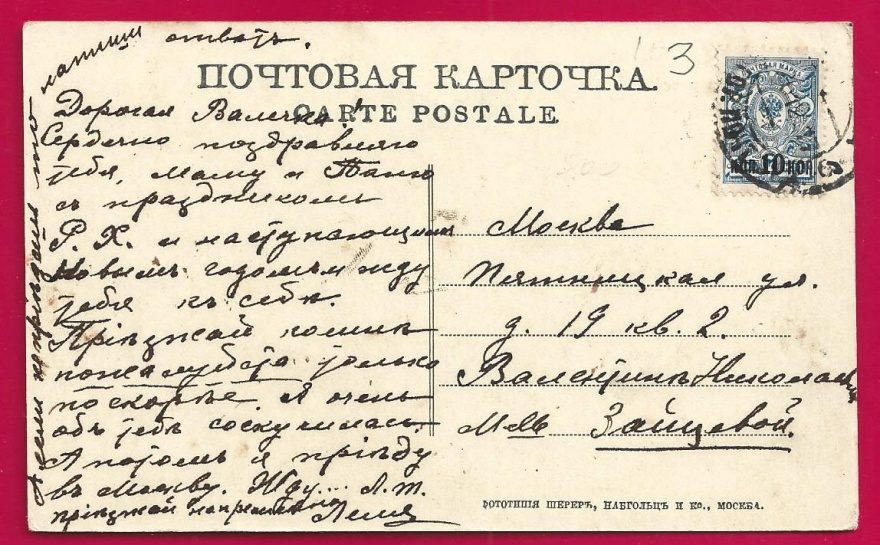 ПОЧТОВАЯ КАРТОЧКА.
CARTE POSTALE.
3
Дорогая Валечка!
Сердечно поздравляю
тебя, маму и Папу
съ праздникомъ
Р. Х. и наступающимъ
Новымъ годомъ жду
тебя къ себѣ.
Пріѣзжай ко мнѣ
пожалуйста только
поскорѣе. Я очень
объ тебѣ соскучилась.
А потомъ я пріѣду
въ Москву. Жду... Л. т.
пріѣзжай непремѣнно
Леля
А если не пріѣдешь то
напиши отвѣтъ.
Москва
Пятницкая ул.
д. 19 кв. 2.
Валентинѣ Николаевнѣ
Зайцевой.
10 коп
ФОТОТИПІЯ ШЕРЕРЪ, НАБГОЛЬЦЪ И КО., МОСКВА.